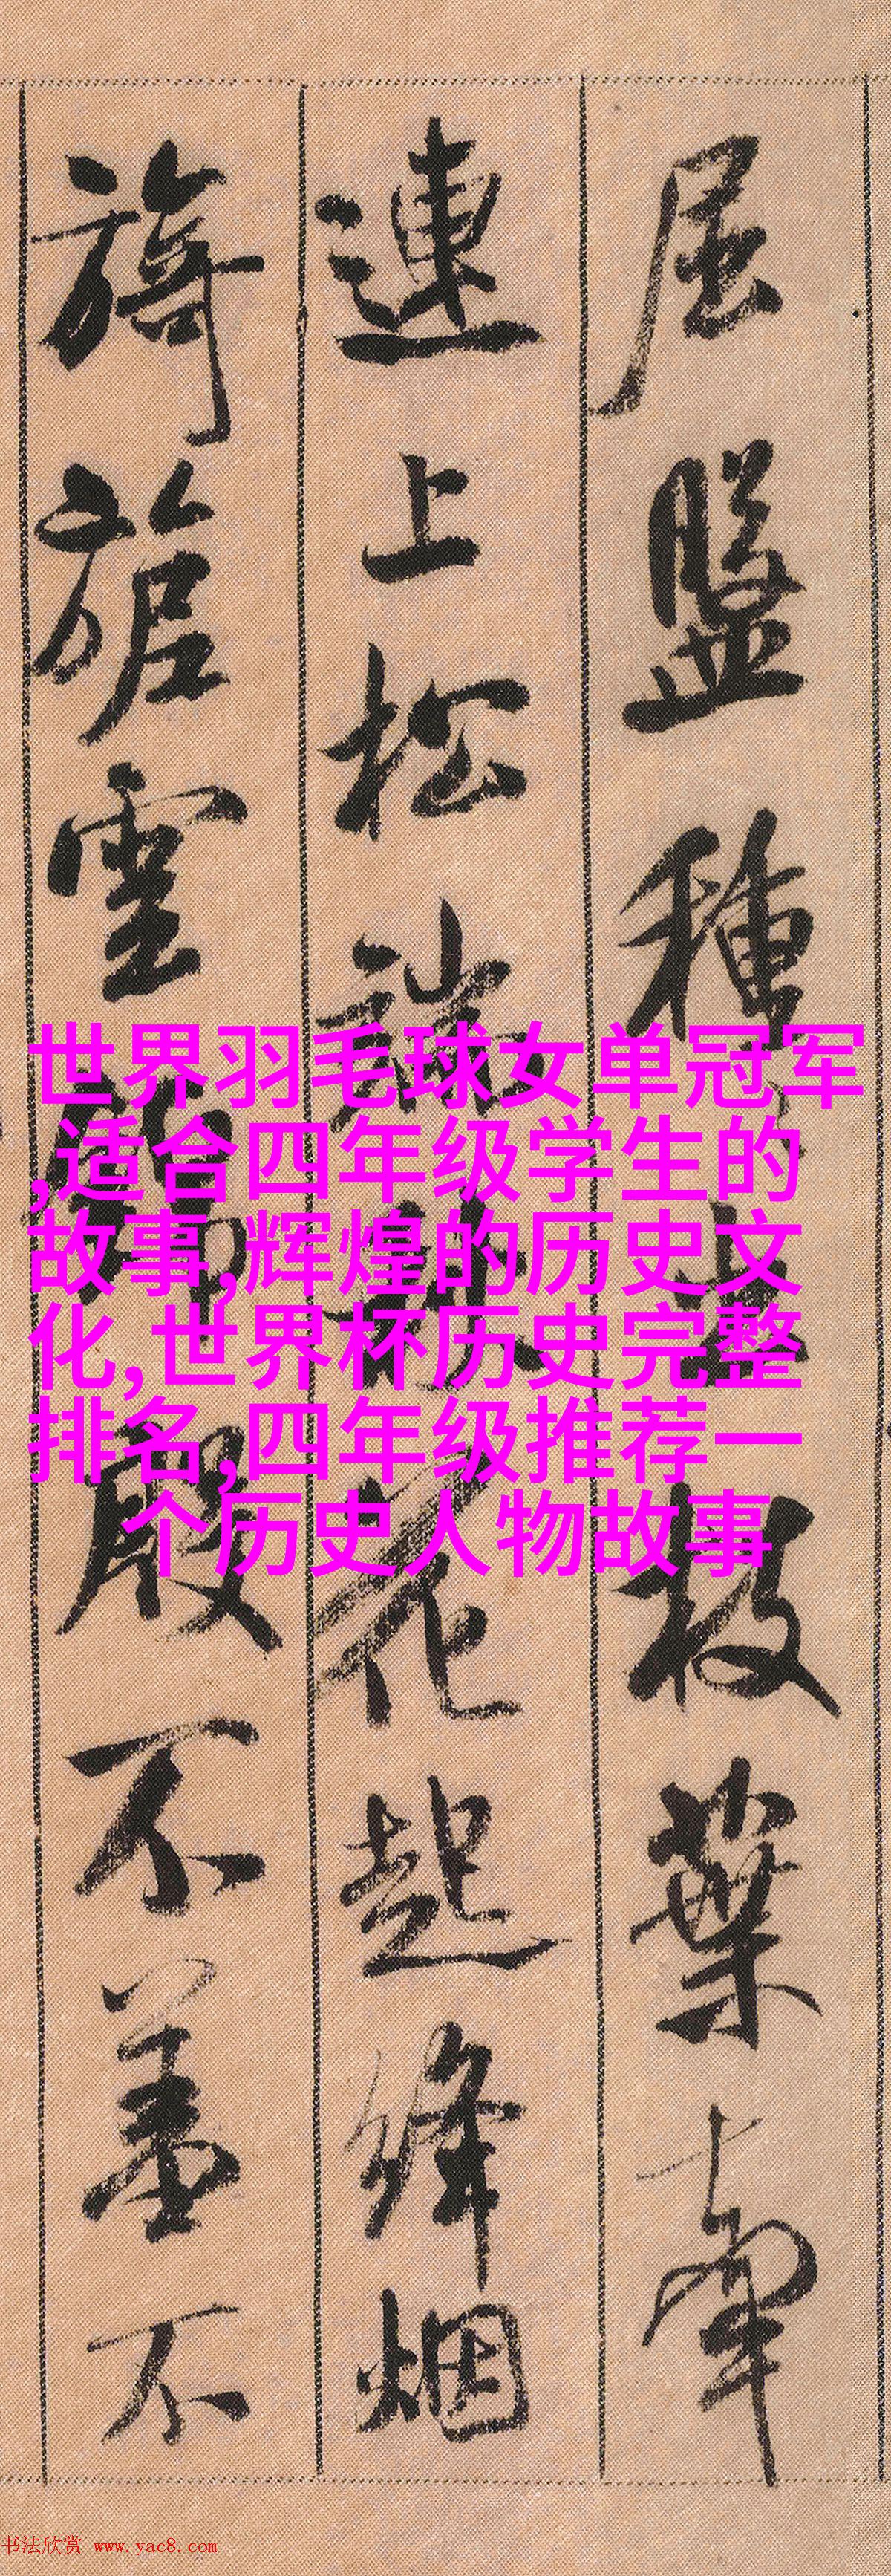 屈盤種
枝葉牽
連上松
花起絳烟
旖旎雲
殿不羞不
世界羽毛球女单冠军
,适合四年级学生的
故事,辉煌的历史文
化,世界杯历史完整
排名,四年级推荐一
个历史人物故事
书法欣赏 www.yac8.com